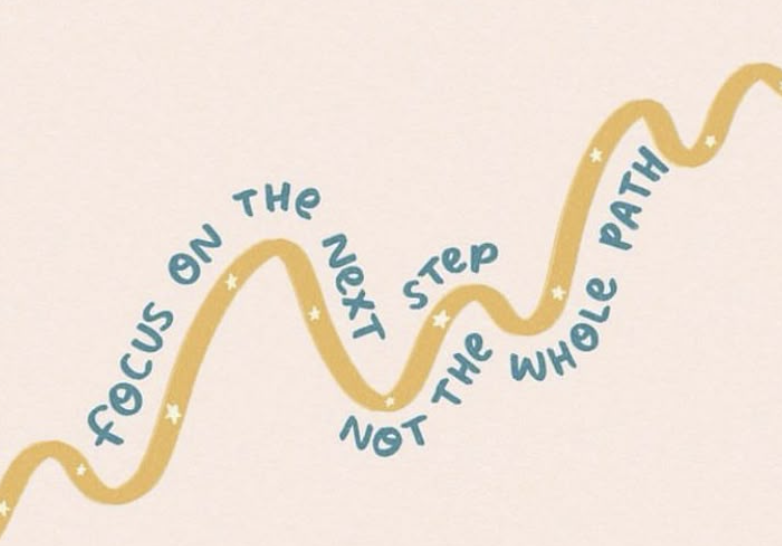 FOCUS ON THE NEXT STEP
NOT THE WHOLE PATH